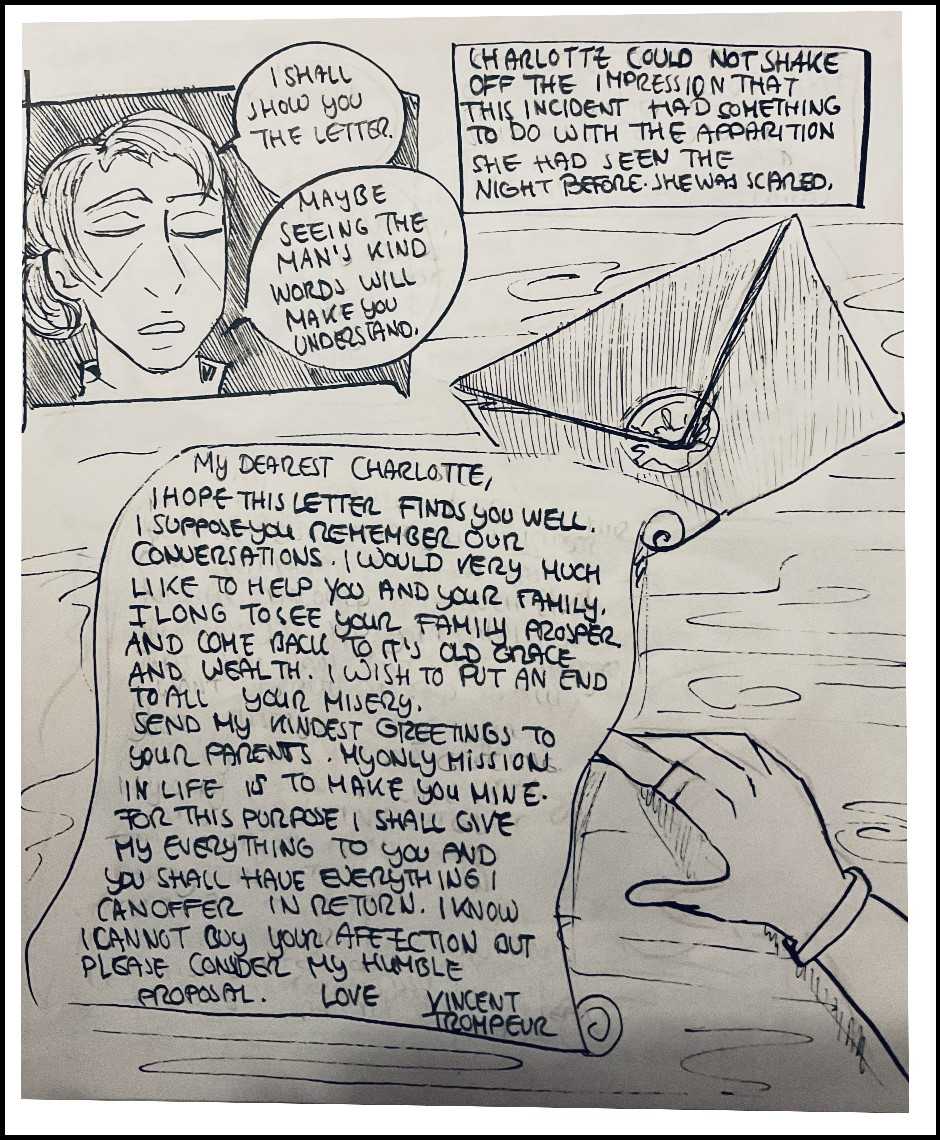 I SHALL
SHOW YOU
THE LETTER.
MAYBE
SEEING THE
MAN'S KIND
WORDS WILL
MAKE YOU
UNDERSTAND.
CHARLOTTE COULD NOT SHAKE
OFF THE IMPRESSION THAT
THIS INCIDENT HAD SOMETHING
TO DO WITH THE APPARITION
SHE HAD SEEN THE
NIGHT BEFORE. SHE WAS SCARED.
MY DEAREST CHARLOTTE,
I HOPE THIS LETTER FINDS YOU WELL.
I SUPPOSE YOU REMEMBER OUR
CONVERSATIONS. I WOULD VERY MUCH
LIKE TO HELP YOU AND YOUR FAMILY.
I LONG TO SEE YOUR FAMILY PROSPER
AND COME BACK TO IT'S OLD GRACE
AND WEALTH. I WISH TO PUT AN END
TO ALL YOUR MISERY.
SEND MY KINDEST GREETINGS TO
YOUR PARENTS. MY ONLY MISSION
IN LIFE IS TO MAKE YOU MINE.
FOR THIS PURPOSE I SHALL GIVE
MY EVERYTHING TO YOU AND
YOU SHALL HAVE EVERYTHING I
CAN OFFER IN RETURN. I KNOW
I CANNOT BUY YOUR AFFECTION BUT
PLEASE CONSIDER MY HUMBLE
PROPOSAL. LOVE VINCENT
TROMPEUR